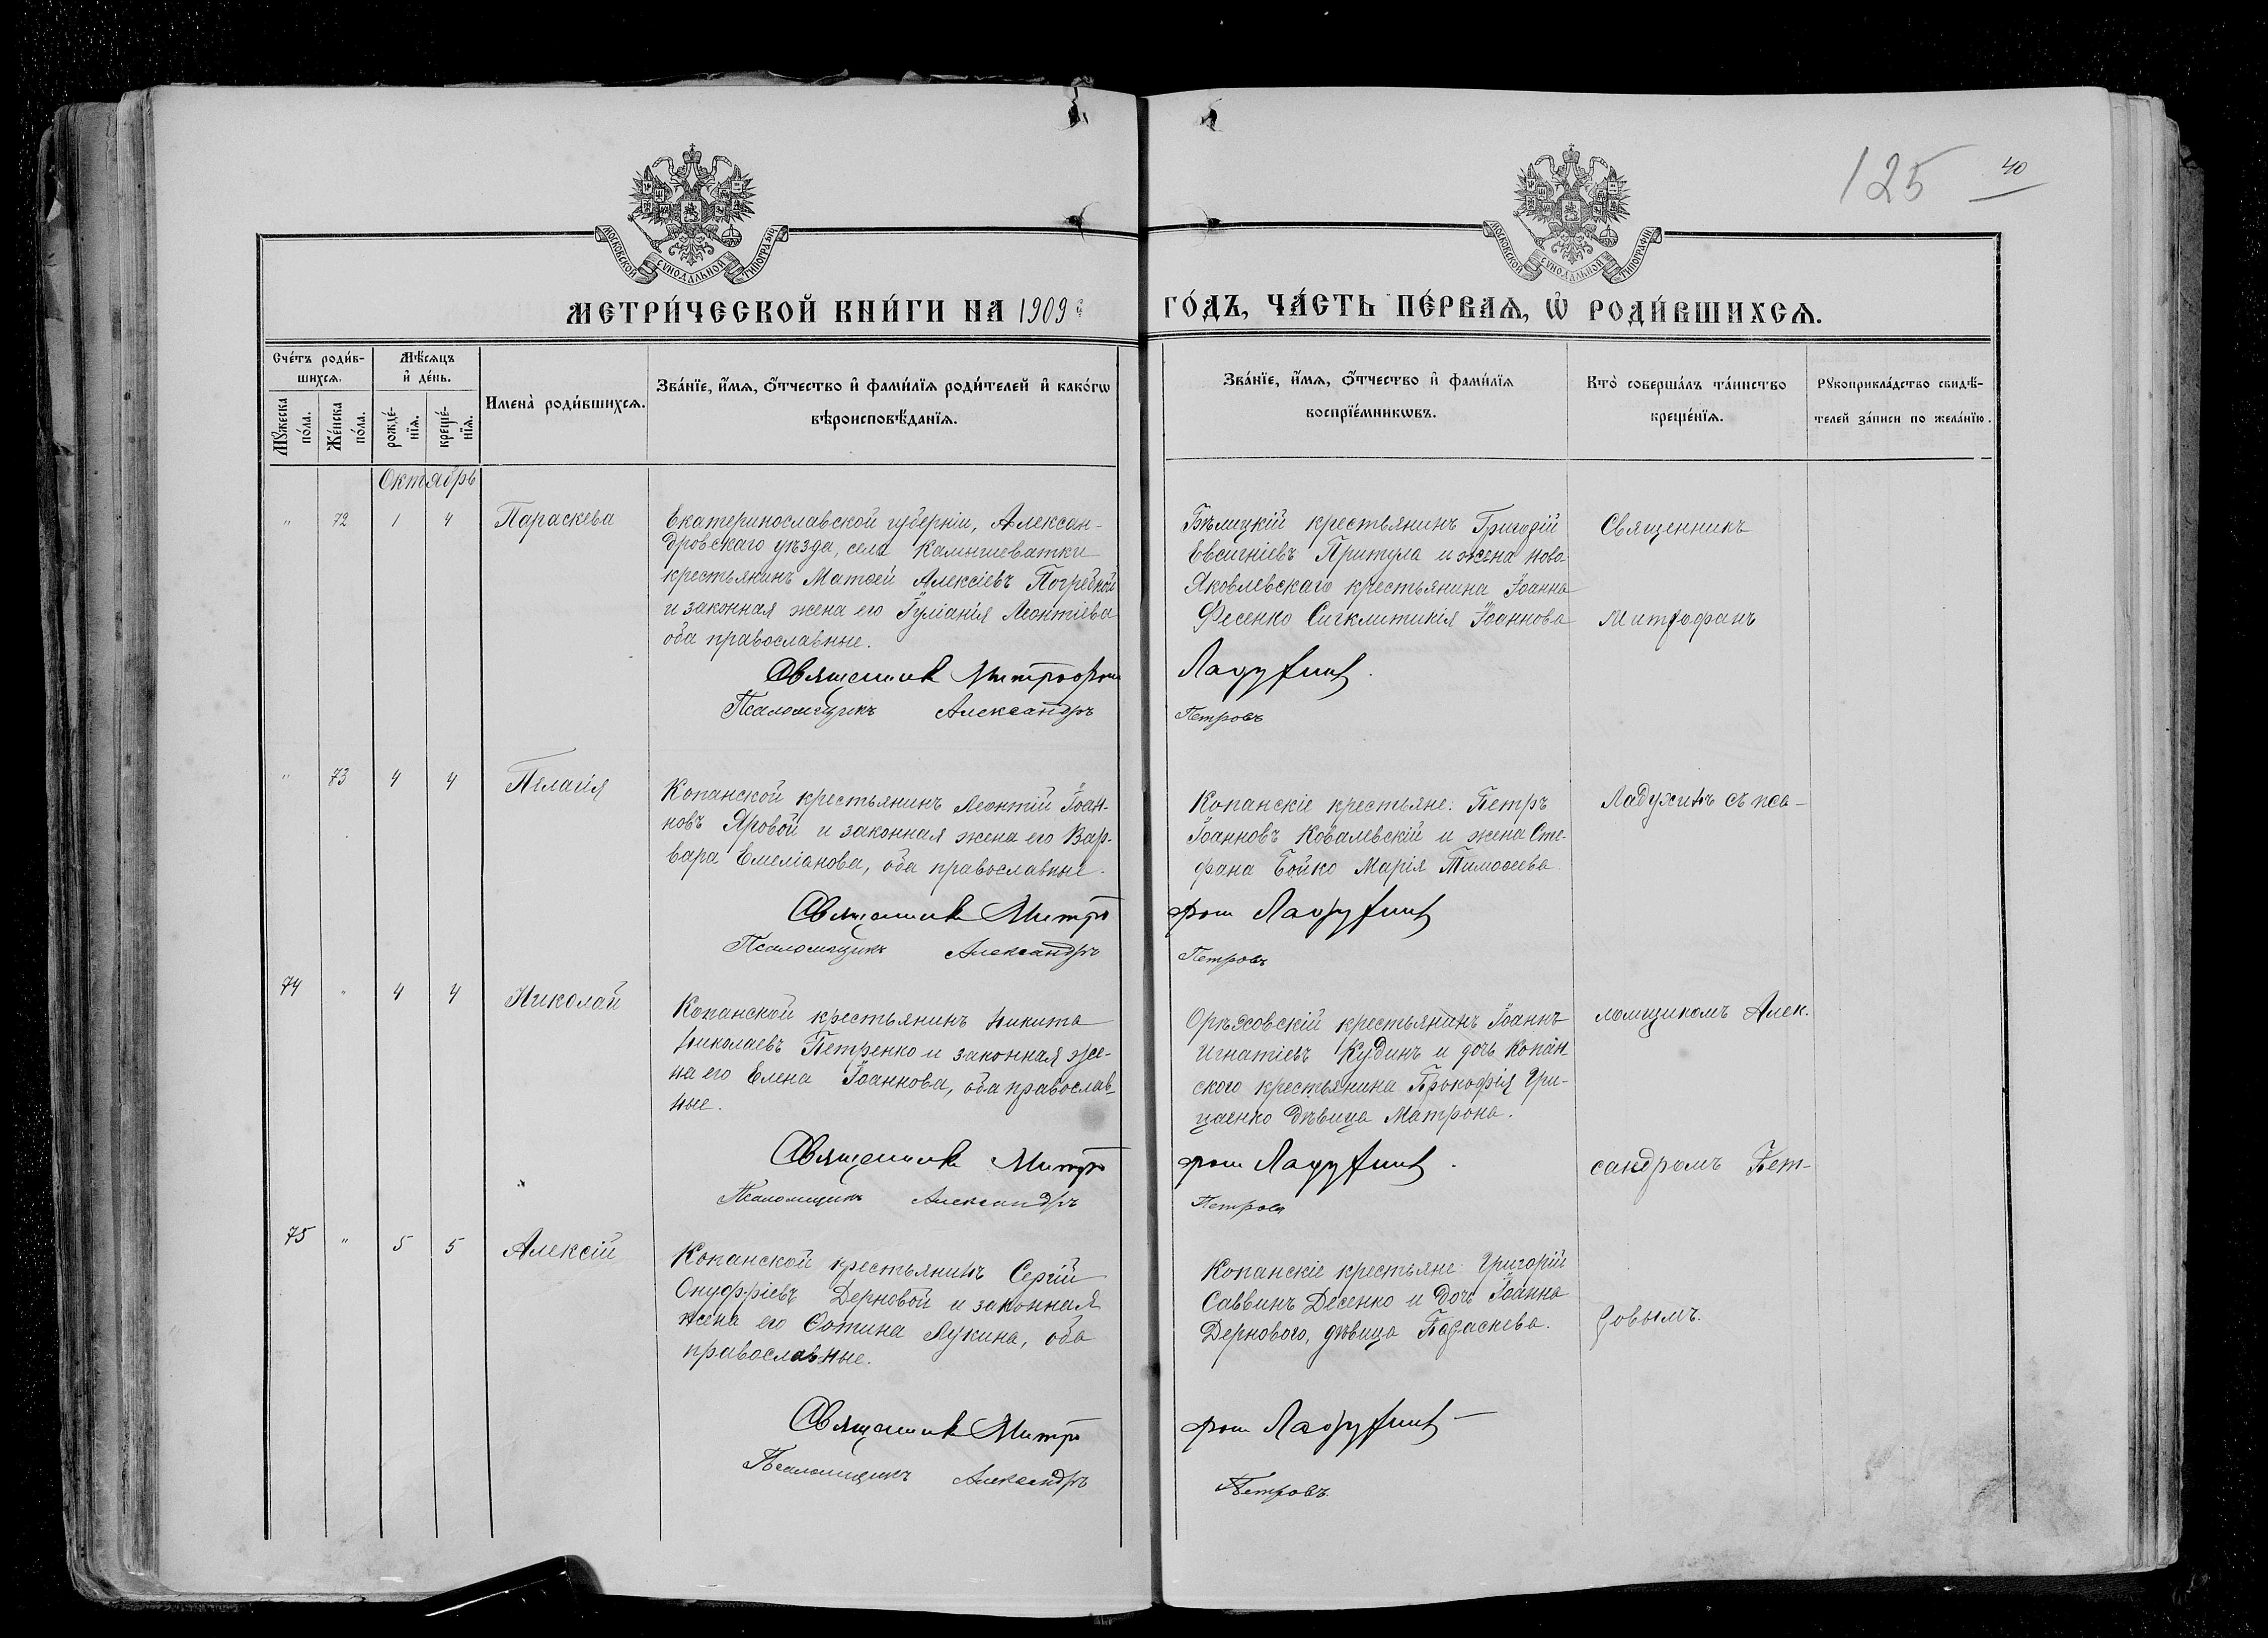 125 40
МОСКОВСКОЙ СУНОДАЛЬНОЙ ТИПОГРАФІИ
МОСКОВСКОЙ СУНОДАЛЬНОЙ ТИПОГРАФІИ
МЕТРИ́ЧЕСКОЙ КНИ́ГИ НА 1909 й ГО́ДЪ, ЧА́СТЬ ПЕ́РВАѦ, Ѡ҆ РОДИ́ВШИХСѦ.
Сче́тъ роди́в-
шихсѧ.
Мѣ́сѧцъ
и҆ де́нь.
Мꙋ́жеска
по́ла.
Же́нска
по́ла.
рожде́-
нїѧ.
креще́-
нїѧ.
Имена̀ роди́вшихсѧ.
Зва́нїе, и҆́мѧ, ѻ҆́тчество и҆ фами́лїѧ роди́телей и҆ како́гѡ
вѣроисповѣ́данїѧ.
Зва́нїе, и҆́мѧ, ѻ҆́тчество и҆ фами́лїѧ
воспрїе́мникѡвъ.
Кто̀ соверша́лъ та́инство
креще́нїѧ.
Рꙋкоприкла́дство свидѣ́-
телей за́писи по жела́нїю.
Октябрь
" 72 1 4 Параскева
Екатеринославской губерніи, Алексан-
дровскаго уѣзда, села Камышеватки
крестьянинъ Матѳей Алексіевъ Погребной
и законная жена его Гуліанія Леонтіева
оба православные.
Священник Митрофан Ладужинъ.
Псаломщикъ Александръ Петровъ
Бѣлицкій крестьянинъ Григорій
Евсигніевъ Притула и жена ново-
Яковлевскаго крестьянина Іоанна
Фесенко Сигклитикія Іоаннова
Священникъ
Митрофанъ
" 73 4 4 Пелагія
Копанской крестьянинъ Леонтій Іоан-
новъ Яровой и законная жена его Вар-
вара Емеліанова, оба православные.
Священник Митрофан Ладужинъ
Псаломщикъ Александръ Петровъ
Копанскіе крестьяне: Петръ
Іоанновъ Ковалевскій и жена Сте-
фана Бойко Марія Тимоѳеева.
Ладужинъ съ пса-
74 " 4 4 Николай
Копанской крестьянинъ Никита
Николаевъ Петренко и законная же-
на его Елена Іоаннова, оба православ-
ные.
Священник Митрофан Ладужинъ.
Псаломщикъ Александръ Петровъ
Орѣховскій крестьянинъ Іоаннъ
Игнатіевъ Кудинъ и дочь Копан
ского крестьянина Прокофія Гри-
цаенко дѣвица Матрона.
ломщикомъ Алек-
сандромъ Пет-
75 " 5 5 Алексій
Копанской крестьянинъ Сергій
Онуфріевъ Дерновой и законная
жена его Ѳотина Лукина, оба
православные.
Священник Митрофан Ладужинъ
Псаломщикъ Александръ Петровъ.
Копанскіе крестьяне: Григорій
Саввинъ Десенко и дочь Іоанна
Дернового, дѣвица Параскева.
ровымъ.